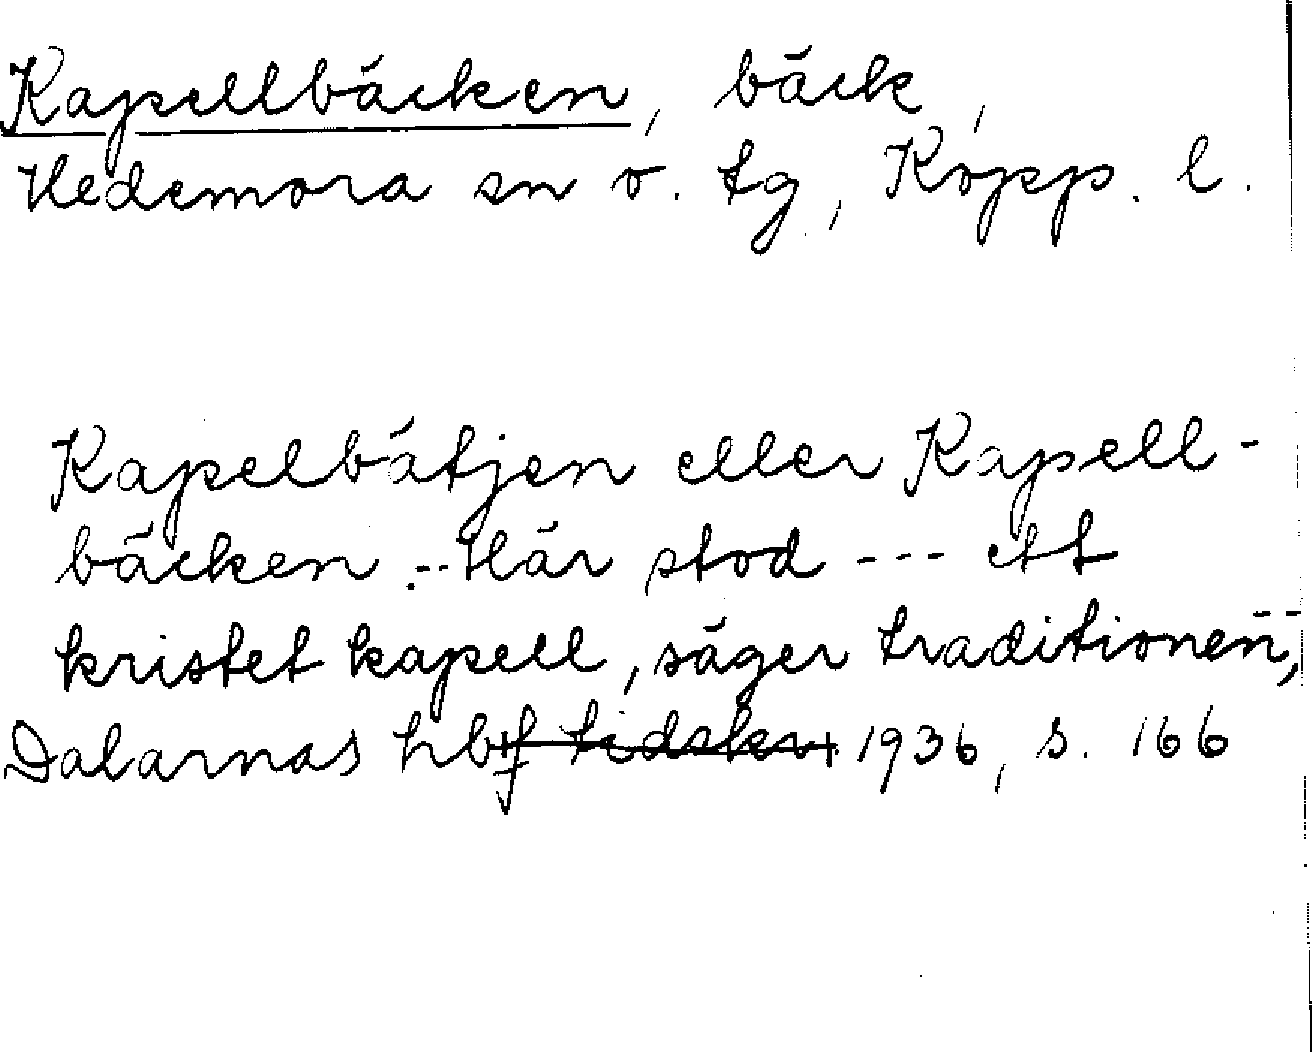 Kapellbäcken, bäck,
Hedemora sn o. tg, Kopp. l.
Kapelbätjen eller Kapell-
bäcken .-- Här stod --- ett
kristet kapell, säger traditionen --,
Dalarnas hbf tidskr. 1936, s. 166